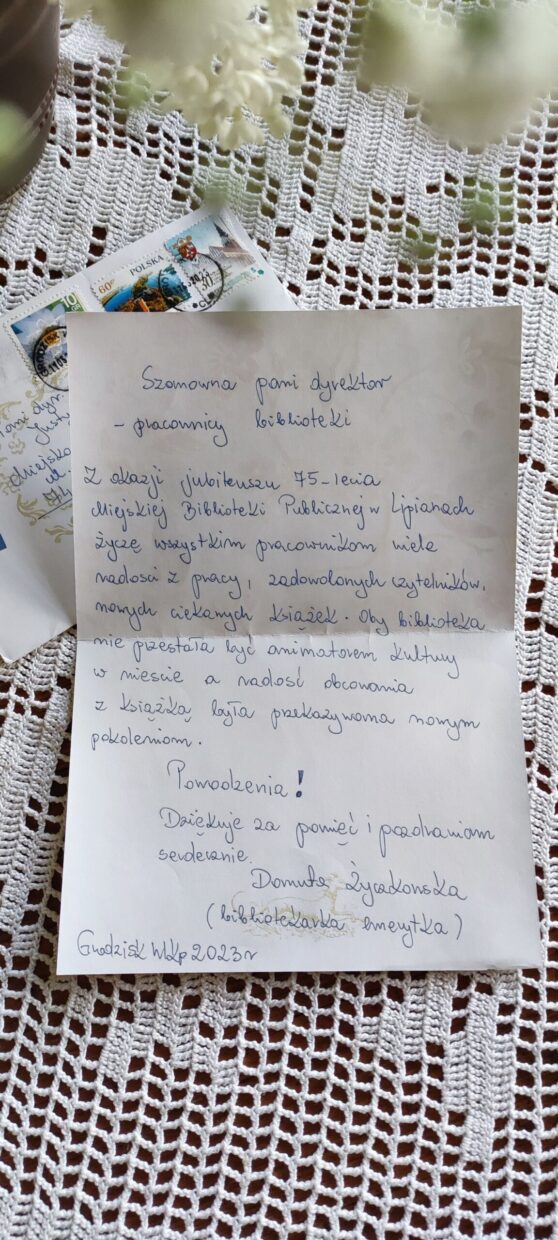 60
POLSKA
10
Pani dyr.
Justy
Miejska
ul.
74
Szanowna pani dyrektor
- pracownicy biblioteki
Z okazji jubileuszu 75-lecia
Miejskiej Biblioteki Publicznej w Lipianach
życzę wszystkim pracownikom wiele
radości z pracy, zadowolonych czytelników,
nowych ciekawych książek. Oby biblioteka
nie przestała być animatorem kultury
w mieście a radość obcowania
z książką była przekazywana nowym
pokoleniom.
Powodzenia!
Dziękuję za pamięć i pozdrawiam
serdecznie.
Danuta Życzkowska
(bibliotekarka emerytka)
Grodzisk Wlkp 2023r